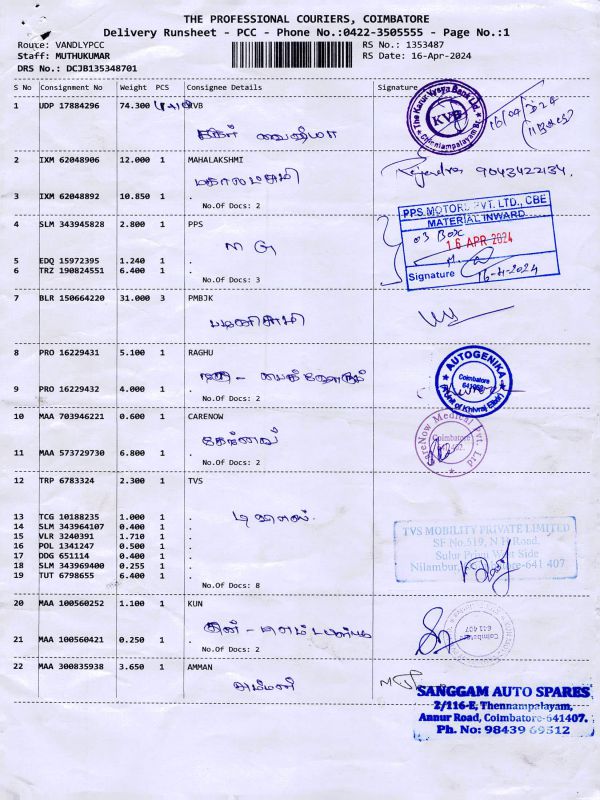 THE PROFESSIONAL COURIERS, COIMBATORE
Delivery Runsheet - PCC - Phone No.:0422-3505555 - Page No.:1
Route: VANDLYPCC
RS No.: 1353487
Staff: MUTHUKUMAR
RS Date: 16-Apr-2024
DRS No.: DCJB135348701
S No Consignment No Weight PCS Consignee Details Signature
1 UDP 17884296 74.300 KVB
The Karur Vysya Bank Ltd.
KVB
Chinniampalayam Br.
16/04/2024
2 IXM 62048906 12.000 1 MAHALAKSHMI
மகாலட்சுமி
Rajendra 9043422134.
3 IXM 62048892 10.850 1 .
No.Of Docs: 2
PPS MOTORS PVT. LTD., CBE
MATERIAL INWARD
03 Box
16 APR 2024
Signature 16-4-2024
4 SLM 343945828 2.800 1 PPS
M G
5 EDQ 15972395 1.240 1 .
6 TRZ 190824551 6.400 1 .
No.Of Docs: 3
7 BLR 150664220 31.000 3 PMBJK
பழனிசாமி
8 PRO 16229431 5.100 1 RAGHU
AUTOGENIKA
Coimbatore
(A Unit of Khivraj
9 PRO 16229432 4.000 1 .
No.Of Docs: 2
10 MAA 703946221 0.600 1 CARENOW
CareNow Medical Pvt. Ltd
Coimbatore
641 402.
11 MAA 573729730 6.800 1 .
No.Of Docs: 2
12 TRP 6783324 2.300 1 TVS
டிவிஎஸ்.
13 TCG 10188235 1.000 1 .
14 SLM 343964107 0.400 1 .
15 VLR 3240391 1.710 1 .
16 POL 1341247 0.500 1 .
17 DDG 651114 0.400 1 .
18 SLM 343969400 0.255 1 .
19 TUT 6798655 6.400 1 .
No.Of Docs: 8
TVS MOBILITY PRIVATE LIMITED
SF No.519, N H Road,
Sulur Pirivu West Side
Nilambur, Coimbatore-641 407
20 MAA 100560252 1.100 1 KUN
Coimbatore
641 407
21 MAA 100560421 0.250 1 .
No.Of Docs: 2
22 MAA 300835938 3.650 1 AMMAN
அம்மன்
SANGGAM AUTO SPARES
2/116-E, Thennampalayam,
Annur Road, Coimbatore-641407.
Ph. No: 98439 69512